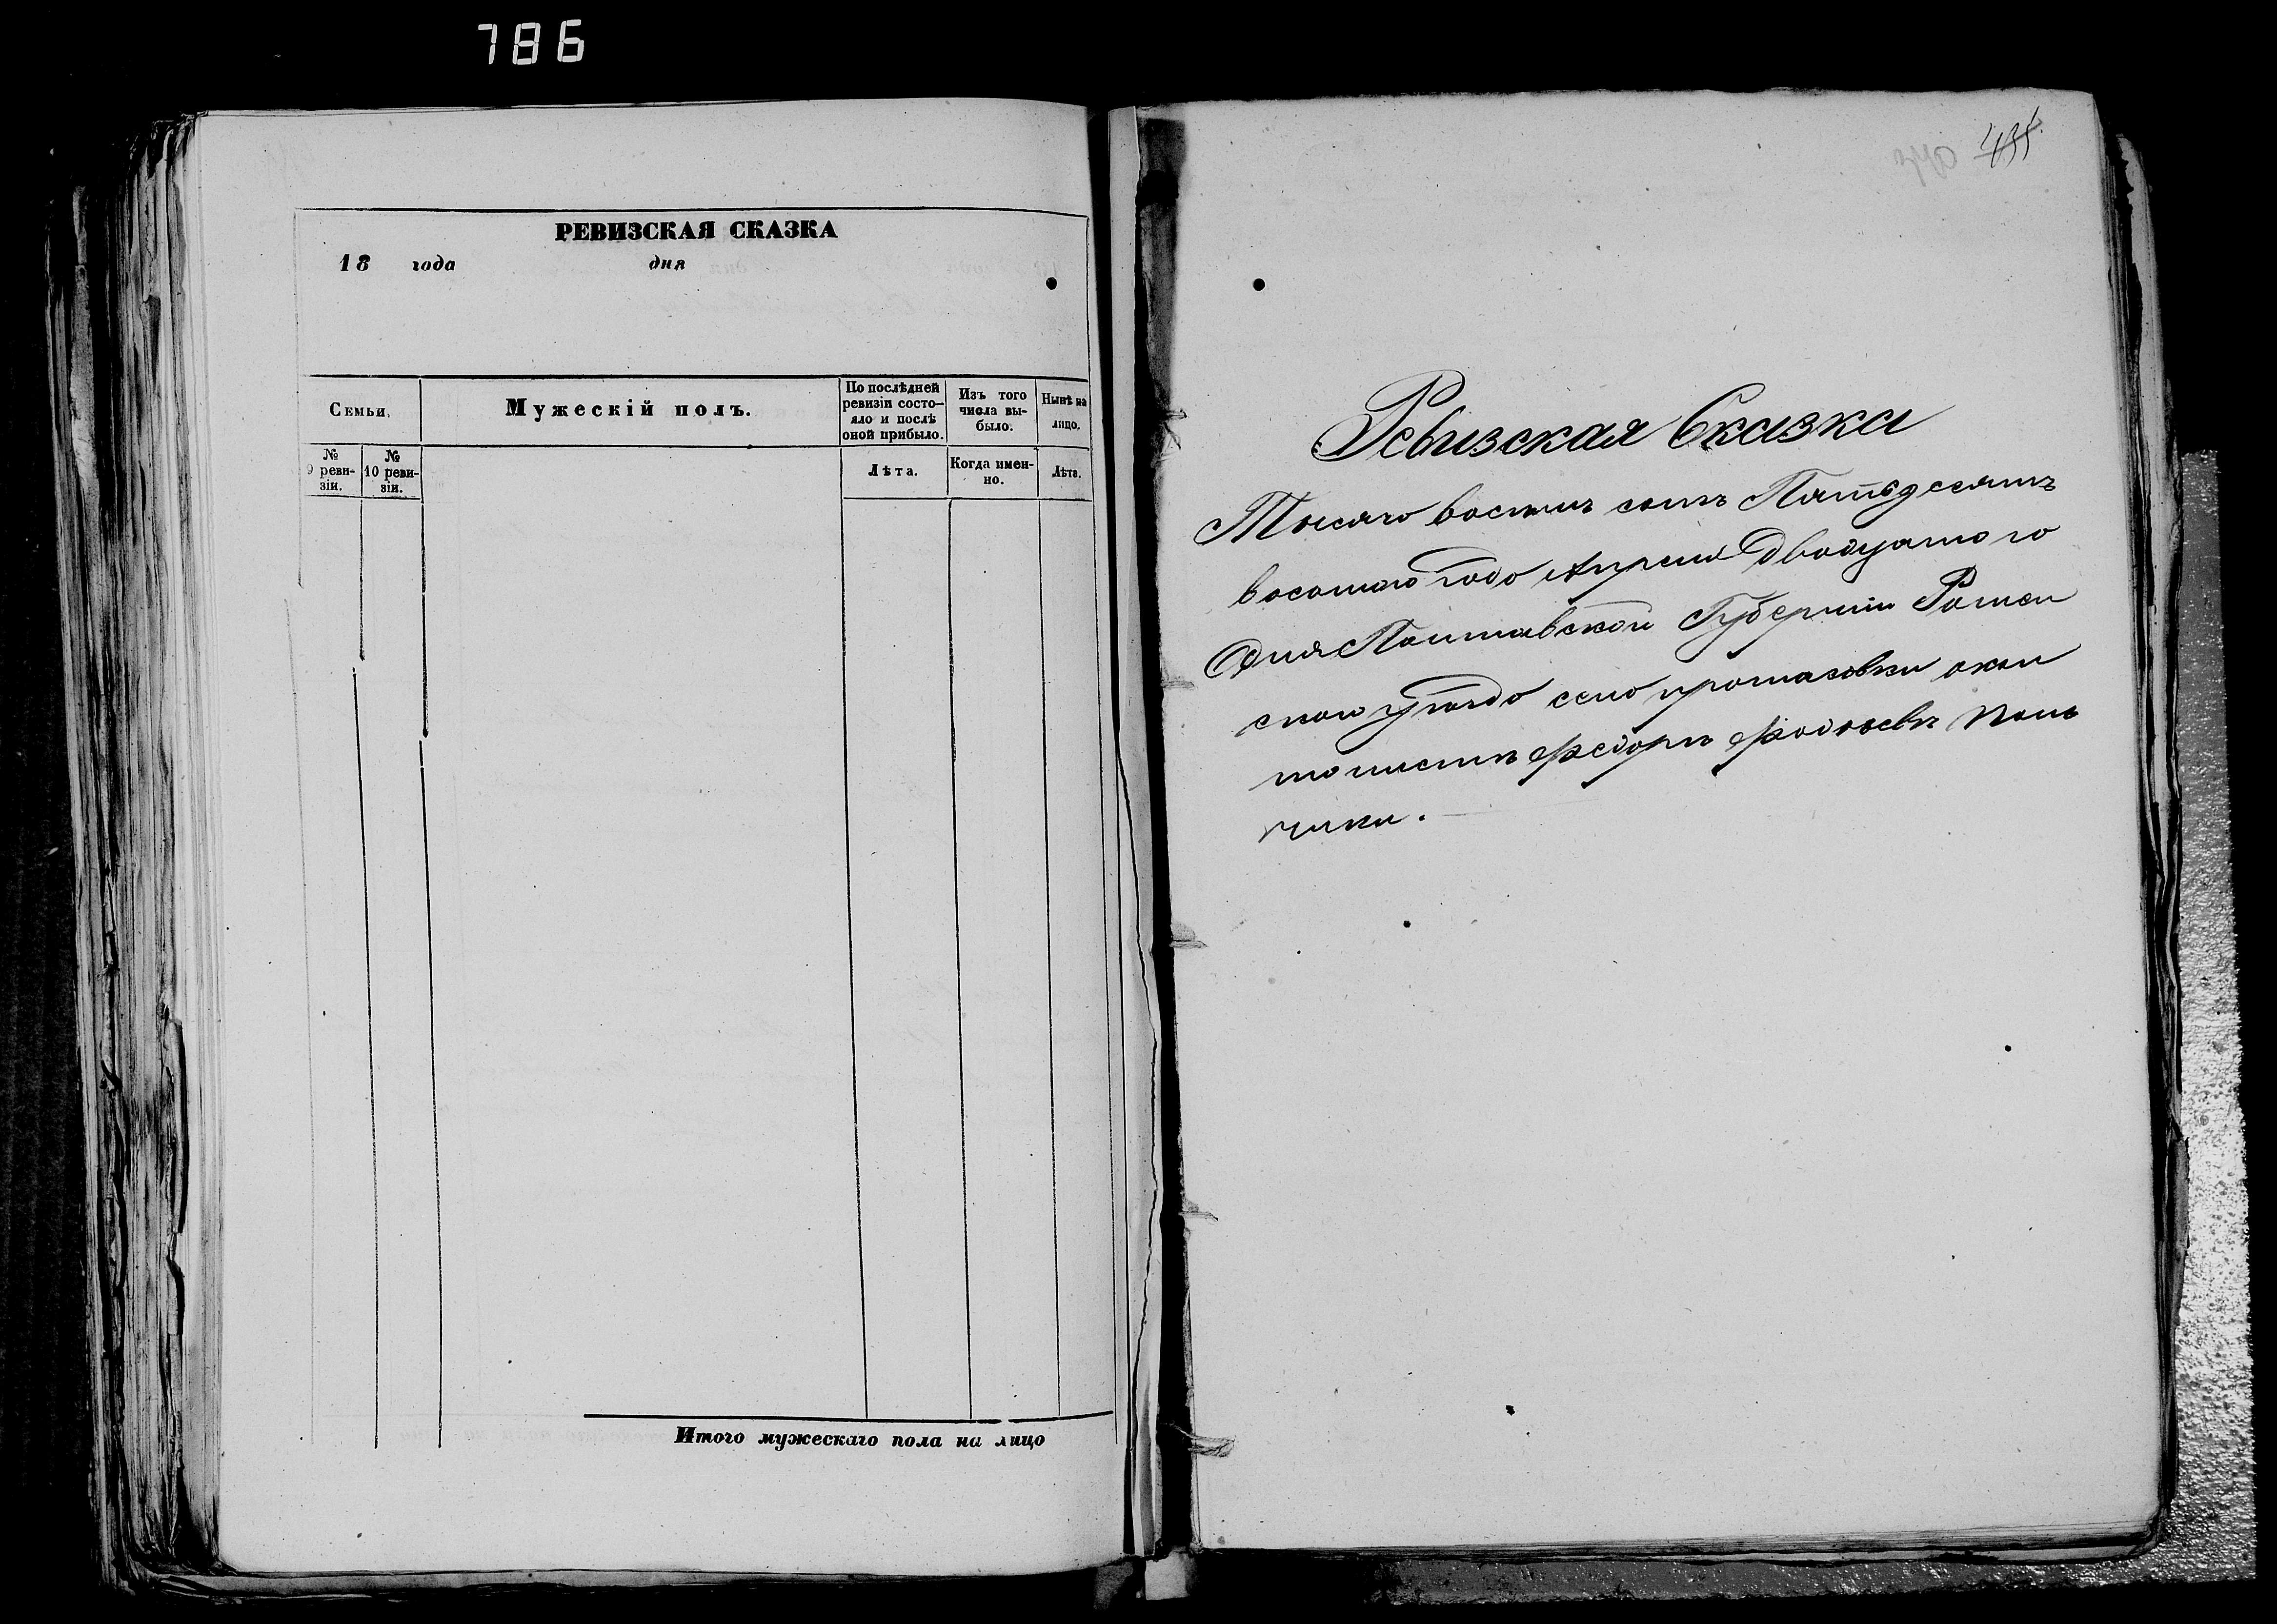 786
РЕВИЗСКАЯ СКАЗКА
18 года дня
Семьи,
Мужескій полъ.
По послѣдней
ревизіи состо-
яло и послѣ
оной прибыло.
Изъ того
числа вы-
было.
Нынѣ на
лицо.
№
9 реви-
зіи.
№
10 реви-
зіи.
Лѣта.
Когда имен-
но.
Лѣта.
Итого мужескаго пола на лицо
340 435
Ревизская Сказка
Тысячо восемь сотъ Пятьдесятъ
восомого годо Апреля Двадцатого
Дня Полтавской Губерніи Ромен
ской уездо село протасовки
Федоръ